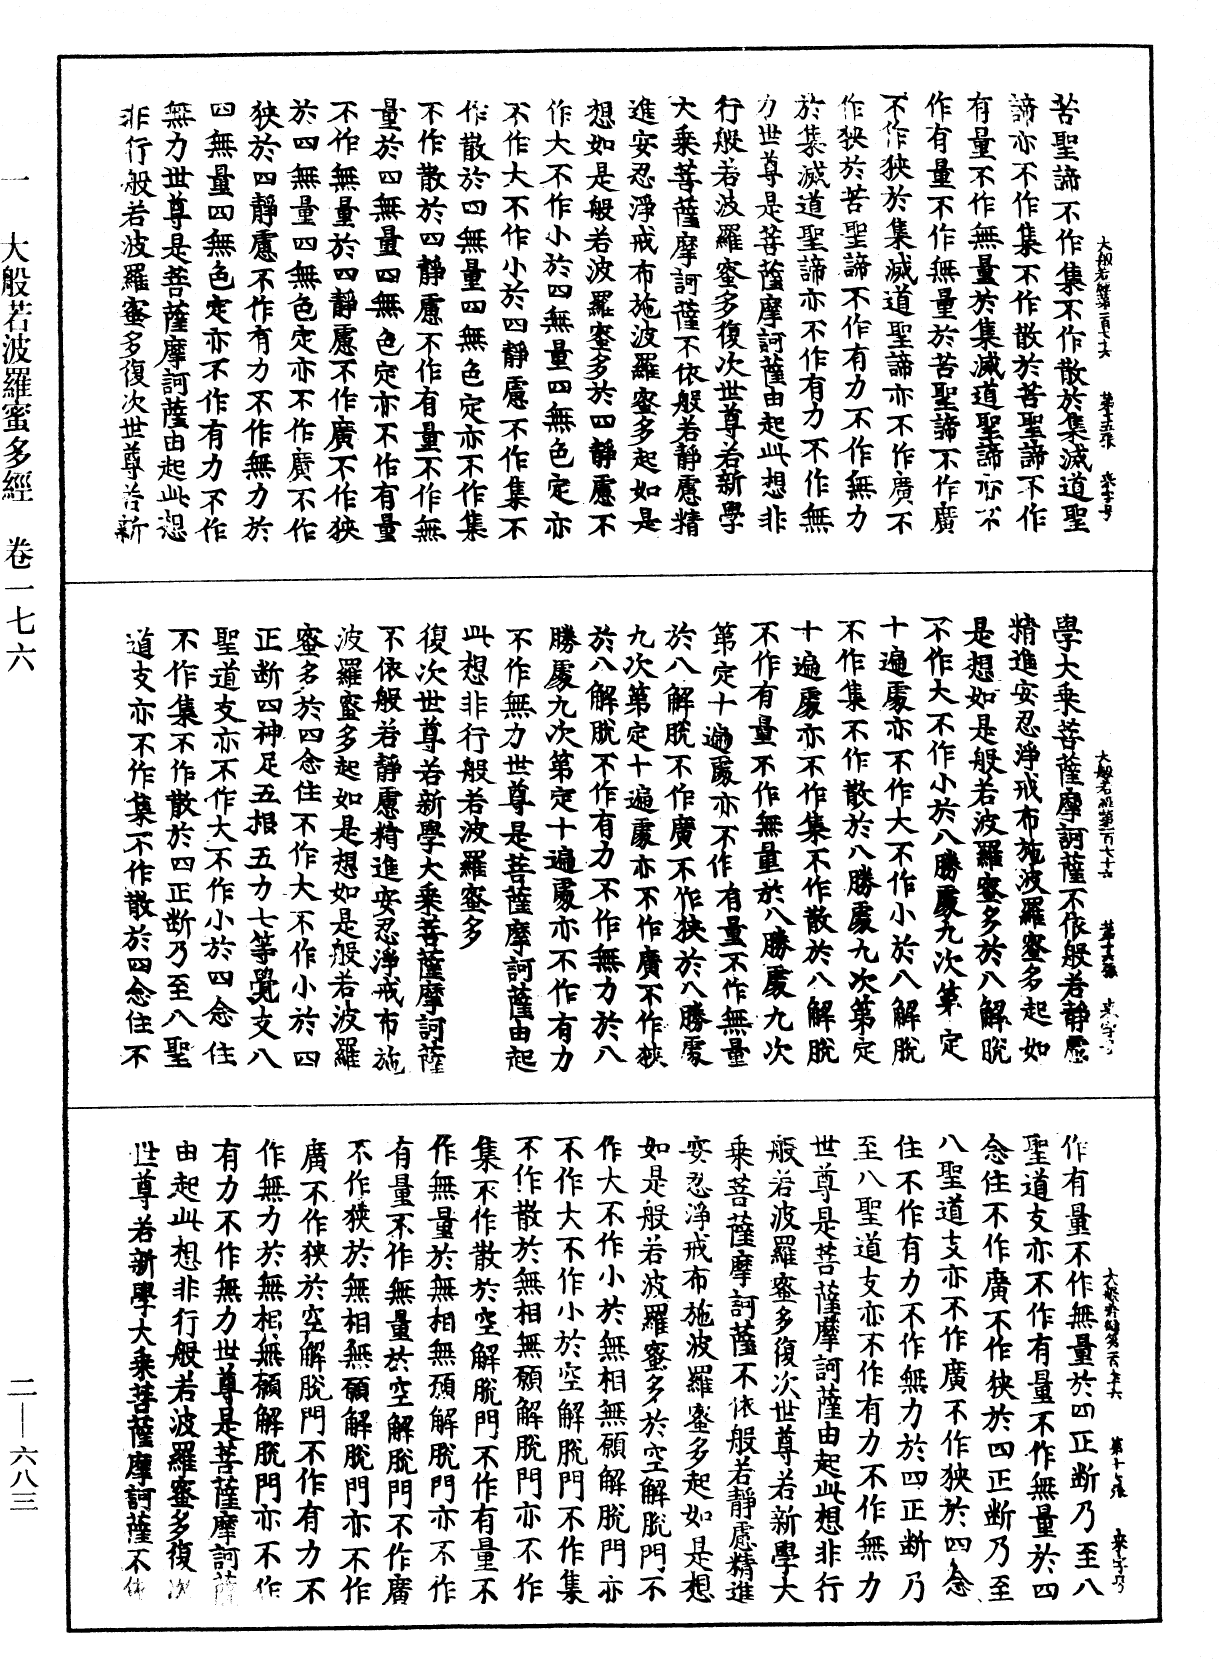 苦聖諦不作集不作散於集滅道聖
諦亦不作集不作散於苦聖諦不作
有量不作無量於集滅道聖諦亦不
作有量不作無量於苦聖諦不作廣
不作狹於集滅道聖諦亦不作廣不
作狹於苦聖諦不作有力不作無力
於集滅道聖諦亦不作有力不作無
力世尊是菩薩摩訶薩由起此想非
行般若波羅蜜多復次世尊若新學
大乘菩薩摩訶薩不依般若靜慮精
進安忍淨戒布施波羅蜜多起如是
想如是般若波羅蜜多於四靜慮不
作大不作小於四無量四無色定亦
不作大不作小於四靜慮不作集不
作散於四無量四無色定亦不作集
不作散於四靜慮不作有量不作無
量於四無量四無色定亦不作有量
不作無量於四靜慮不作廣不作狹
於四無量四無色定亦不作廣不作
狹於四靜慮不作有力不作無力於
四無量四無色定亦不作有力不作
無力世尊是菩薩摩訶薩由起此想
非行般若波羅蜜多復次世尊若新
大般若經第一百七十六 第十五張 來字号
學大乘菩薩摩訶薩不依般若靜慮
精進安忍淨戒布施波羅蜜多起如
是想如是般若波羅蜜多於八解脫
不作大不作小於八勝處九次第定
十遍處亦不作大不作小於八解脫
不作集不作散於八勝處九次第定
十遍處亦不作集不作散於八解脫
不作有量不作無量於八勝處九次
第定十遍處亦不作有量不作無量
於八解脫不作廣不作狹於八勝處
九次第定十遍處亦不作廣不作狹
於八解脫不作有力不作無力於八
勝處九次第定十遍處亦不作有力
不作無力世尊是菩薩摩訶薩由起
此想非行般若波羅蜜多
復次世尊若新學大乘菩薩摩訶薩
不依般若靜慮精進安忍淨戒布施
波羅蜜多起如是想如是般若波羅
蜜多於四念住不作大不作小於四
正斷四神足五根五力七等覺支八
聖道支亦不作大不作小於四念住
不作集不作散於四正斷乃至八聖
道支亦不作集不作散於四念住不
大般若經第一百七十六 第十六張 來字号
作有量不作無量於四正斷乃至八
聖道支亦不作有量不作無量於四
念住不作廣不作狹於四正斷乃至
八聖道支亦不作廣不作狹於四念
住不作有力不作無力於四正斷乃
至八聖道支亦不作有力不作無力
世尊是菩薩摩訶薩由起此想非行
般若波羅蜜多復次世尊若新學大
乘菩薩摩訶薩不依般若靜慮精進
安忍淨戒布施波羅蜜多起如是想
如是般若波羅蜜多於空解脫門不
作大不作小於無相無願解脫門亦
不作大不作小於空解脫門不作集
不作散於無相無願解脫門亦不作
集不作散於空解脫門不作有量不
作無量於無相無願解脫門亦不作
有量不作無量於空解脫門不作廣
不作狹於無相無願解脫門亦不作
廣不作狹於空解脫門不作有力不
作無力於無相無願解脫門亦不作
有力不作無力世尊是菩薩摩訶薩
由起此想非行般若波羅蜜多復次
世尊若新學大乘菩薩摩訶薩不依
大般若經第一百七十六 第十七張 來字号
一 大般若波羅蜜多經 卷一七六
二—六八三